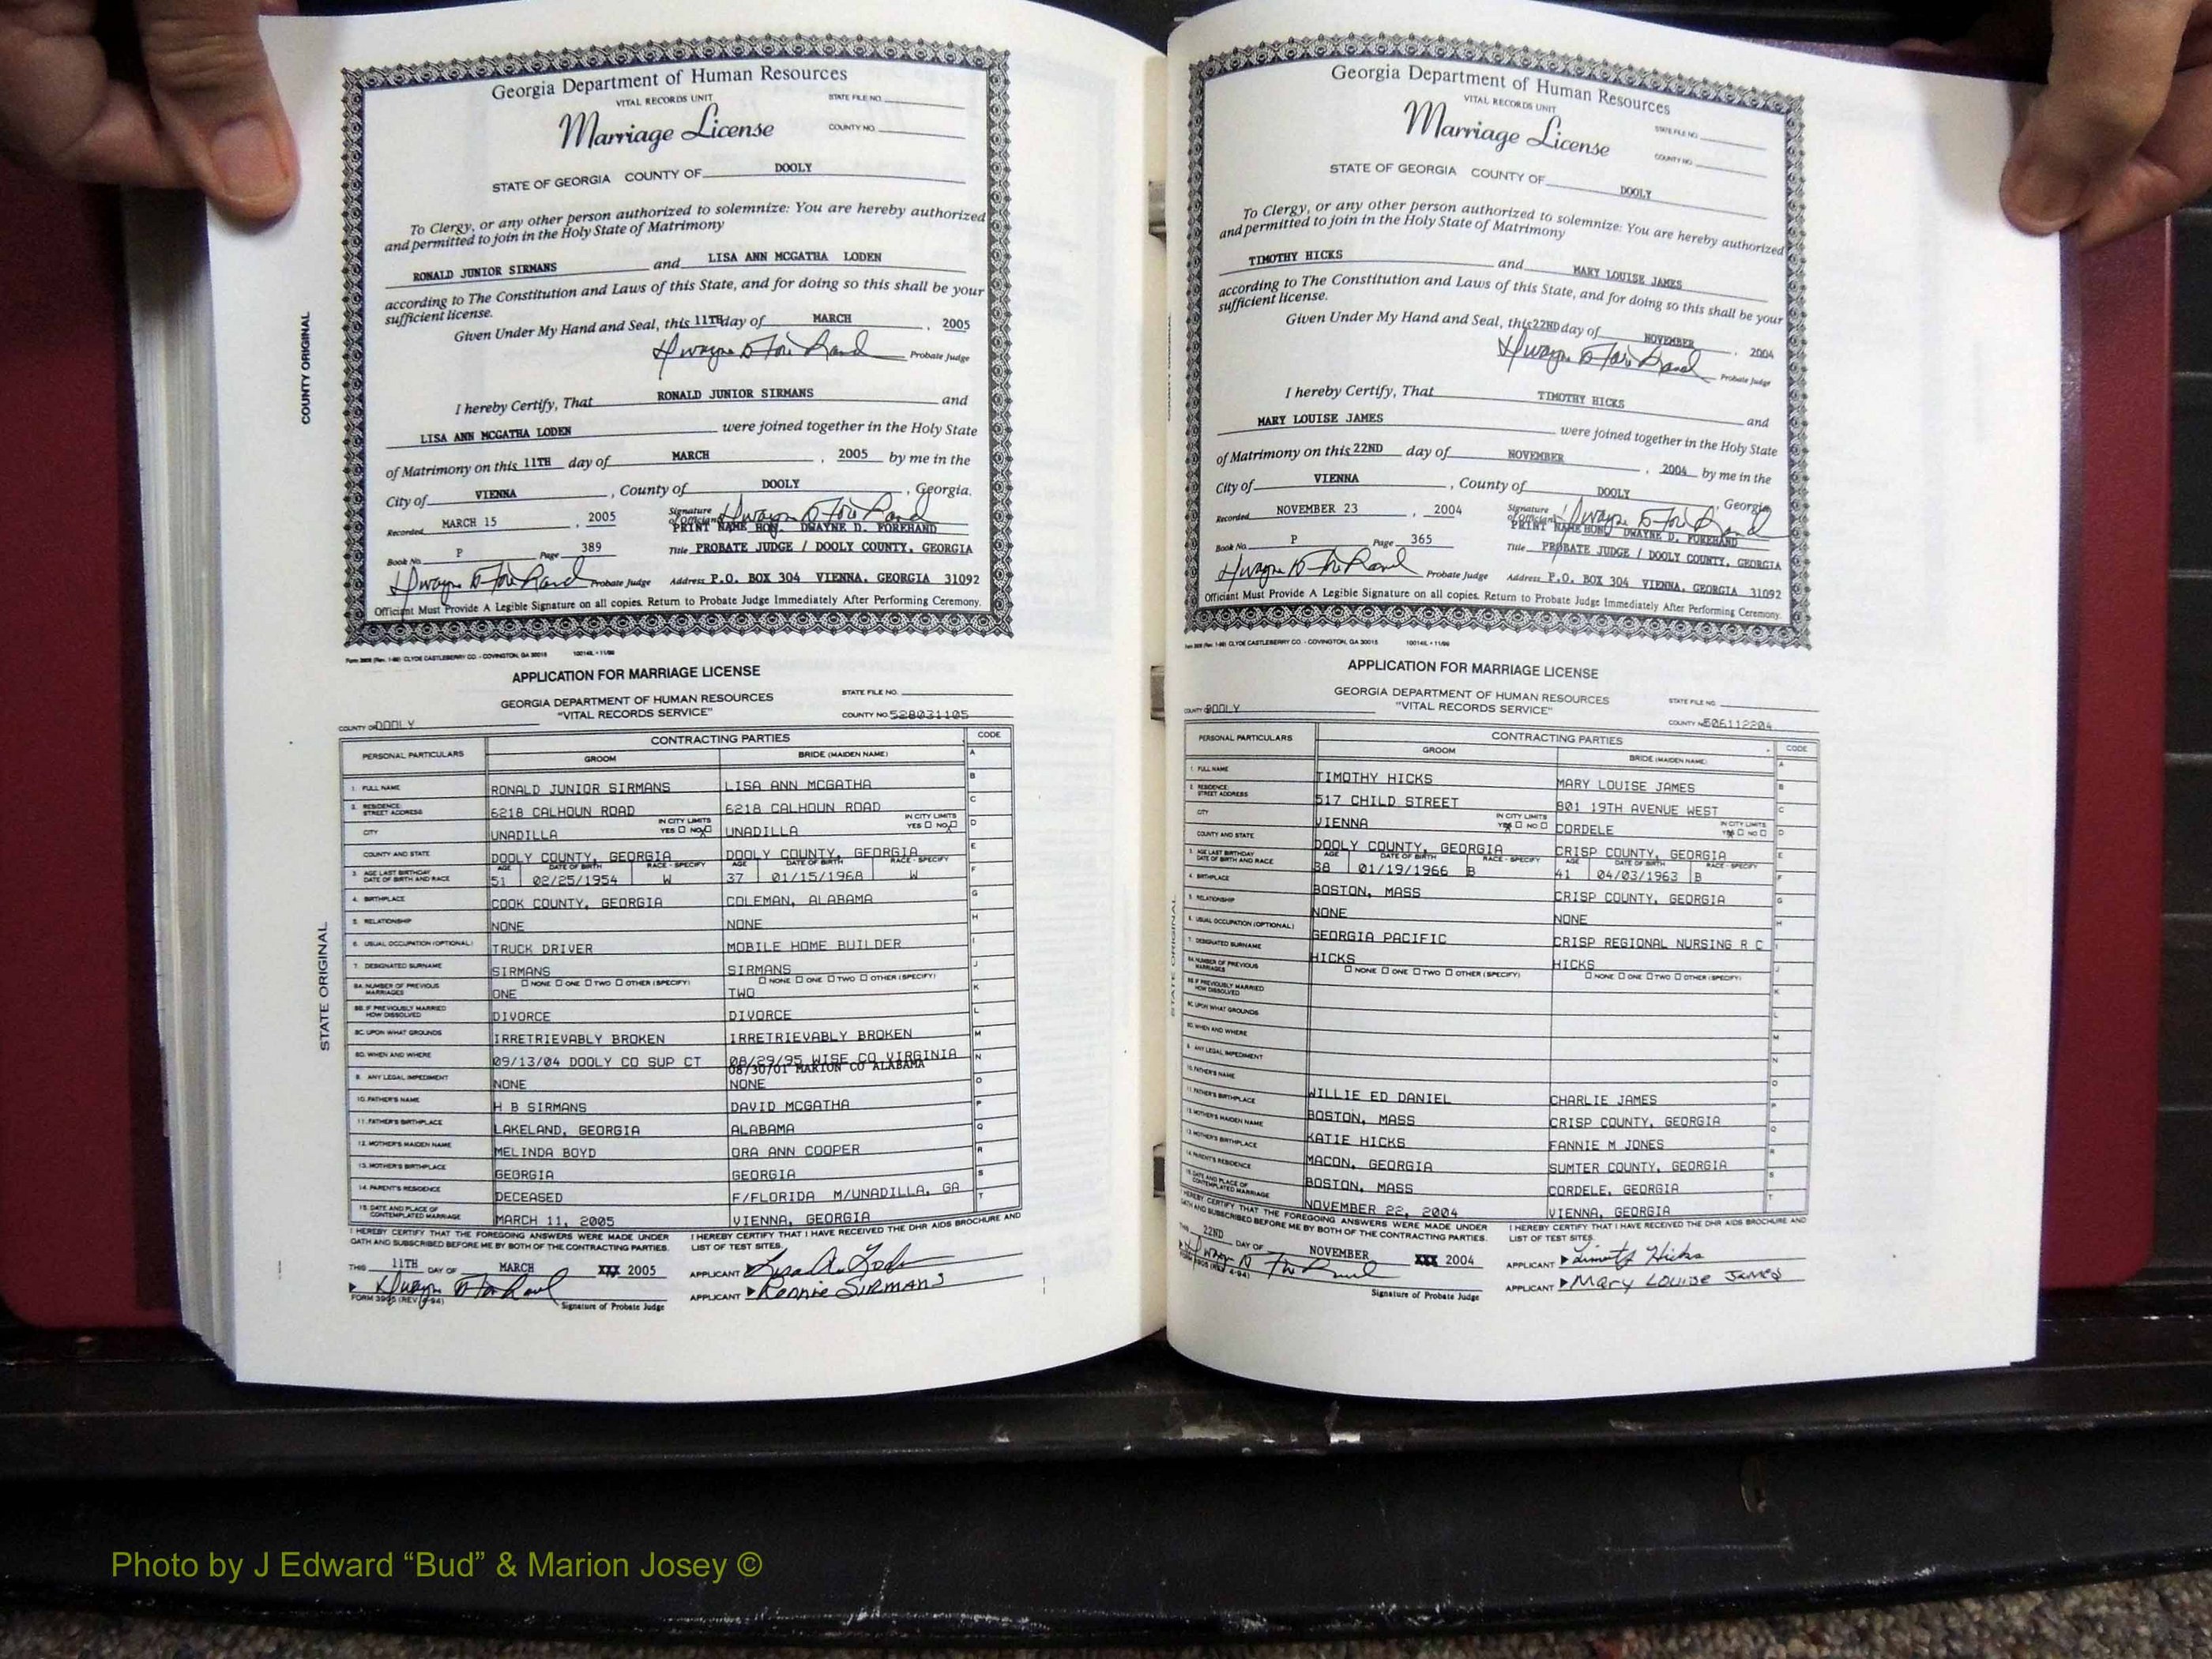 Georgia Department of Human Resources
VITAL RECORDS UNIT
STATE FILE NO.
Marriage License
COUNTY NO.
STATE OF GEORGIA COUNTY OF DOOLY
To Clergy, or any other person authorized to solemnize: You are hereby authorized
and permitted to join in the Holy State of Matrimony
RONALD JUNIOR SIRMANS and LISA ANN MCGATHA LODEN
according to The Constitution and Laws of this State, and for doing so this shall be your
sufficient license.
Given Under My Hand and Seal, this 11TH day of MARCH , 2005
Probate Judge
I hereby Certify, That RONALD JUNIOR SIRMANS and
LISA ANN MCGATHA LODEN were joined together in the Holy State
of Matrimony on this 11TH day of MARCH , 2005 by me in the
City of VIENNA , County of DOOLY , Georgia.
Recorded MARCH 15 , 2005 Signature of Officiant
PRINT NAME HON. DWAYNE D. FOREHAND
Book No. P Page 389 Title PROBATE JUDGE / DOOLY COUNTY, GEORGIA
Probate Judge Address P.O. BOX 304 VIENNA, GEORGIA 31092
Officiant Must Provide A Legible Signature on all copies. Return to Probate Judge Immediately After Performing Ceremony.
COUNTY ORIGINAL
Form 3908 (Rev. 1-90) CLYDE CASTLEBERRY CO. - COVINGTON, GA 30015 10014IL • 11/98
APPLICATION FOR MARRIAGE LICENSE
GEORGIA DEPARTMENT OF HUMAN RESOURCES
"VITAL RECORDS SERVICE"
STATE FILE NO.
COUNTY NO. 528031105
COUNTY OF DOOLY
PERSONAL PARTICULARS CONTRACTING PARTIES CODE
GROOM BRIDE (MAIDEN NAME) A
1. FULL NAME RONALD JUNIOR SIRMANS LISA ANN MCGATHA B
2. RESIDENCE: STREET ADDRESS 6218 CALHOUN ROAD 6218 CALHOUN ROAD C
CITY UNADILLA IN CITY LIMITS YES ☐ NO ☒ UNADILLA IN CITY LIMITS YES ☐ NO ☒ D
COUNTY AND STATE DOOLY COUNTY, GEORGIA DOOLY COUNTY, GEORGIA E
AGE DATE OF BIRTH RACE - SPECIFY AGE DATE OF BIRTH RACE - SPECIFY
3. AGE LAST BIRTHDAY DATE OF BIRTH AND RACE 51 02/25/1954 W 37 01/15/1968 W F
4. BIRTHPLACE COOK COUNTY, GEORGIA COLEMAN, ALABAMA G
5. RELATIONSHIP NONE NONE H
6. USUAL OCCUPATION (OPTIONAL) TRUCK DRIVER MOBILE HOME BUILDER I
7. DESIGNATED SURNAME SIRMANS SIRMANS J
8A. NUMBER OF PREVIOUS MARRIAGES ☐ NONE ☐ ONE ☐ TWO ☐ OTHER (SPECIFY) ONE ☐ NONE ☐ ONE ☐ TWO ☐ OTHER (SPECIFY) TWO K
8B. IF PREVIOUSLY MARRIED HOW DISSOLVED DIVORCE DIVORCE L
8C. UPON WHAT GROUNDS IRRETRIEVABLY BROKEN IRRETRIEVABLY BROKEN M
8D. WHEN AND WHERE 09/13/04 DOOLY CO SUP CT 08/29/95 WISE CO VIRGINIA N
08/30/01 MARION CO ALABAMA
9. ANY LEGAL IMPEDIMENT NONE NONE O
10. FATHER'S NAME H B SIRMANS DAVID MCGATHA P
11. FATHER'S BIRTHPLACE LAKELAND, GEORGIA ALABAMA Q
12. MOTHER'S MAIDEN NAME MELINDA BOYD ORA ANN COOPER R
13. MOTHER'S BIRTHPLACE GEORGIA GEORGIA S
14. PARENT'S RESIDENCE DECEASED F/FLORIDA M/UNADILLA, GA T
15. DATE AND PLACE OF CONTEMPLATED MARRIAGE MARCH 11, 2005 VIENNA, GEORGIA
I HEREBY CERTIFY THAT THE FOREGOING ANSWERS WERE MADE UNDER
OATH AND SUBSCRIBED BEFORE ME BY BOTH OF THE CONTRACTING PARTIES.
I HEREBY CERTIFY THAT I HAVE RECEIVED THE DHR AIDS BROCHURE AND
LIST OF TEST SITES.
THIS 11TH DAY OF MARCH XXX 2005
APPLICANT Lisa A. Loden
APPLICANT Ronnie Sirmans
FORM 3905 (REV. 4-94) Signature of Probate Judge
STATE ORIGINAL
Georgia Department of Human Resources
VITAL RECORDS UNIT
STATE FILE NO.
Marriage License
COUNTY NO.
STATE OF GEORGIA COUNTY OF DOOLY
To Clergy, or any other person authorized to solemnize: You are hereby authorized
and permitted to join in the Holy State of Matrimony
TIMOTHY HICKS and MARY LOUISE JAMES
according to The Constitution and Laws of this State, and for doing so this shall be your
sufficient license.
Given Under My Hand and Seal, this 22ND day of NOVEMBER , 2004
Probate Judge
I hereby Certify, That TIMOTHY HICKS and
MARY LOUISE JAMES were joined together in the Holy State
of Matrimony on this 22ND day of NOVEMBER , 2004 by me in the
City of VIENNA , County of DOOLY , Georgia
Recorded NOVEMBER 23 , 2004 Signature of Officiant
PRINT NAME HON. DWAYNE D. FOREHAND
Book No. P Page 365 Title PROBATE JUDGE / DOOLY COUNTY, GEORGIA
Probate Judge Address P.O. BOX 304 VIENNA, GEORGIA 31092
Officiant Must Provide A Legible Signature on all copies. Return to Probate Judge Immediately After Performing Ceremony.
Form 3908 (Rev. 1-90) CLYDE CASTLEBERRY CO. - COVINGTON, GA 30015 10014IL • 11/98
APPLICATION FOR MARRIAGE LICENSE
GEORGIA DEPARTMENT OF HUMAN RESOURCES
"VITAL RECORDS SERVICE"
STATE FILE NO.
COUNTY NO. 506112204
COUNTY OF DOOLY
PERSONAL PARTICULARS CONTRACTING PARTIES CODE
GROOM BRIDE (MAIDEN NAME) A
1. FULL NAME TIMOTHY HICKS MARY LOUISE JAMES B
2. RESIDENCE: STREET ADDRESS 517 CHILD STREET 801 19TH AVENUE WEST C
CITY VIENNA IN CITY LIMITS YES ☒ NO ☐ CORDELE IN CITY LIMITS YES ☒ NO ☐ D
COUNTY AND STATE DOOLY COUNTY, GEORGIA CRISP COUNTY, GEORGIA E
AGE DATE OF BIRTH RACE - SPECIFY AGE DATE OF BIRTH RACE - SPECIFY
3. AGE LAST BIRTHDAY DATE OF BIRTH AND RACE 38 01/19/1966 B 41 04/03/1963 B F
4. BIRTHPLACE BOSTON, MASS CRISP COUNTY, GEORGIA G
5. RELATIONSHIP NONE NONE H
6. USUAL OCCUPATION (OPTIONAL) GEORGIA PACIFIC CRISP REGIONAL NURSING R C I
7. DESIGNATED SURNAME HICKS HICKS J
8A. NUMBER OF PREVIOUS MARRIAGES ☐ NONE ☐ ONE ☐ TWO ☐ OTHER (SPECIFY) ☐ NONE ☐ ONE ☐ TWO ☐ OTHER (SPECIFY) K
8B. IF PREVIOUSLY MARRIED HOW DISSOLVED L
8C. UPON WHAT GROUNDS M
8D. WHEN AND WHERE N
9. ANY LEGAL IMPEDIMENT O
10. FATHER'S NAME WILLIE ED DANIEL CHARLIE JAMES P
11. FATHER'S BIRTHPLACE BOSTON, MASS CRISP COUNTY, GEORGIA Q
12. MOTHER'S MAIDEN NAME KATIE HICKS FANNIE M JONES R
13. MOTHER'S BIRTHPLACE MACON, GEORGIA SUMTER COUNTY, GEORGIA S
14. PARENT'S RESIDENCE BOSTON, MASS CORDELE, GEORGIA T
15. DATE AND PLACE OF CONTEMPLATED MARRIAGE NOVEMBER 22, 2004 VIENNA, GEORGIA
I HEREBY CERTIFY THAT THE FOREGOING ANSWERS WERE MADE UNDER
OATH AND SUBSCRIBED BEFORE ME BY BOTH OF THE CONTRACTING PARTIES.
I HEREBY CERTIFY THAT I HAVE RECEIVED THE DHR AIDS BROCHURE AND
LIST OF TEST SITES.
THIS 22ND DAY OF NOVEMBER XXX 2004
APPLICANT Timothy Hicks
APPLICANT Mary Louise James
FORM 3905 (REV. 4-94) Signature of Probate Judge
STATE ORIGINAL
Photo by J Edward “Bud” & Marion Josey ©